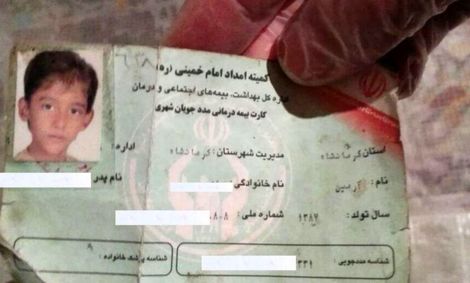 کمیته امداد امام خمینی (ره)
اداره کل بهداشت، بیمه‌های اجتماعی و درمان
کارت بیمه درمانی مدد جویان شهری
استان کرمانشاه
مدیریت شهرستان: کرمانشاه
اداره:
نام:
نام خانوادگی
نام پدر
سال تولد: ۱۳۸۴
شماره ملی:
شناسه مددجویی:
خانواده:
۹